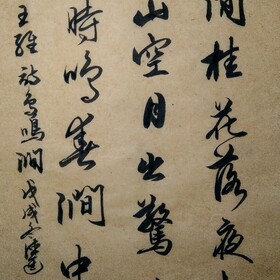 閒桂花落夜
山空月出驚
時鳴春澗中
王維詩鳥鳴澗 戊戌